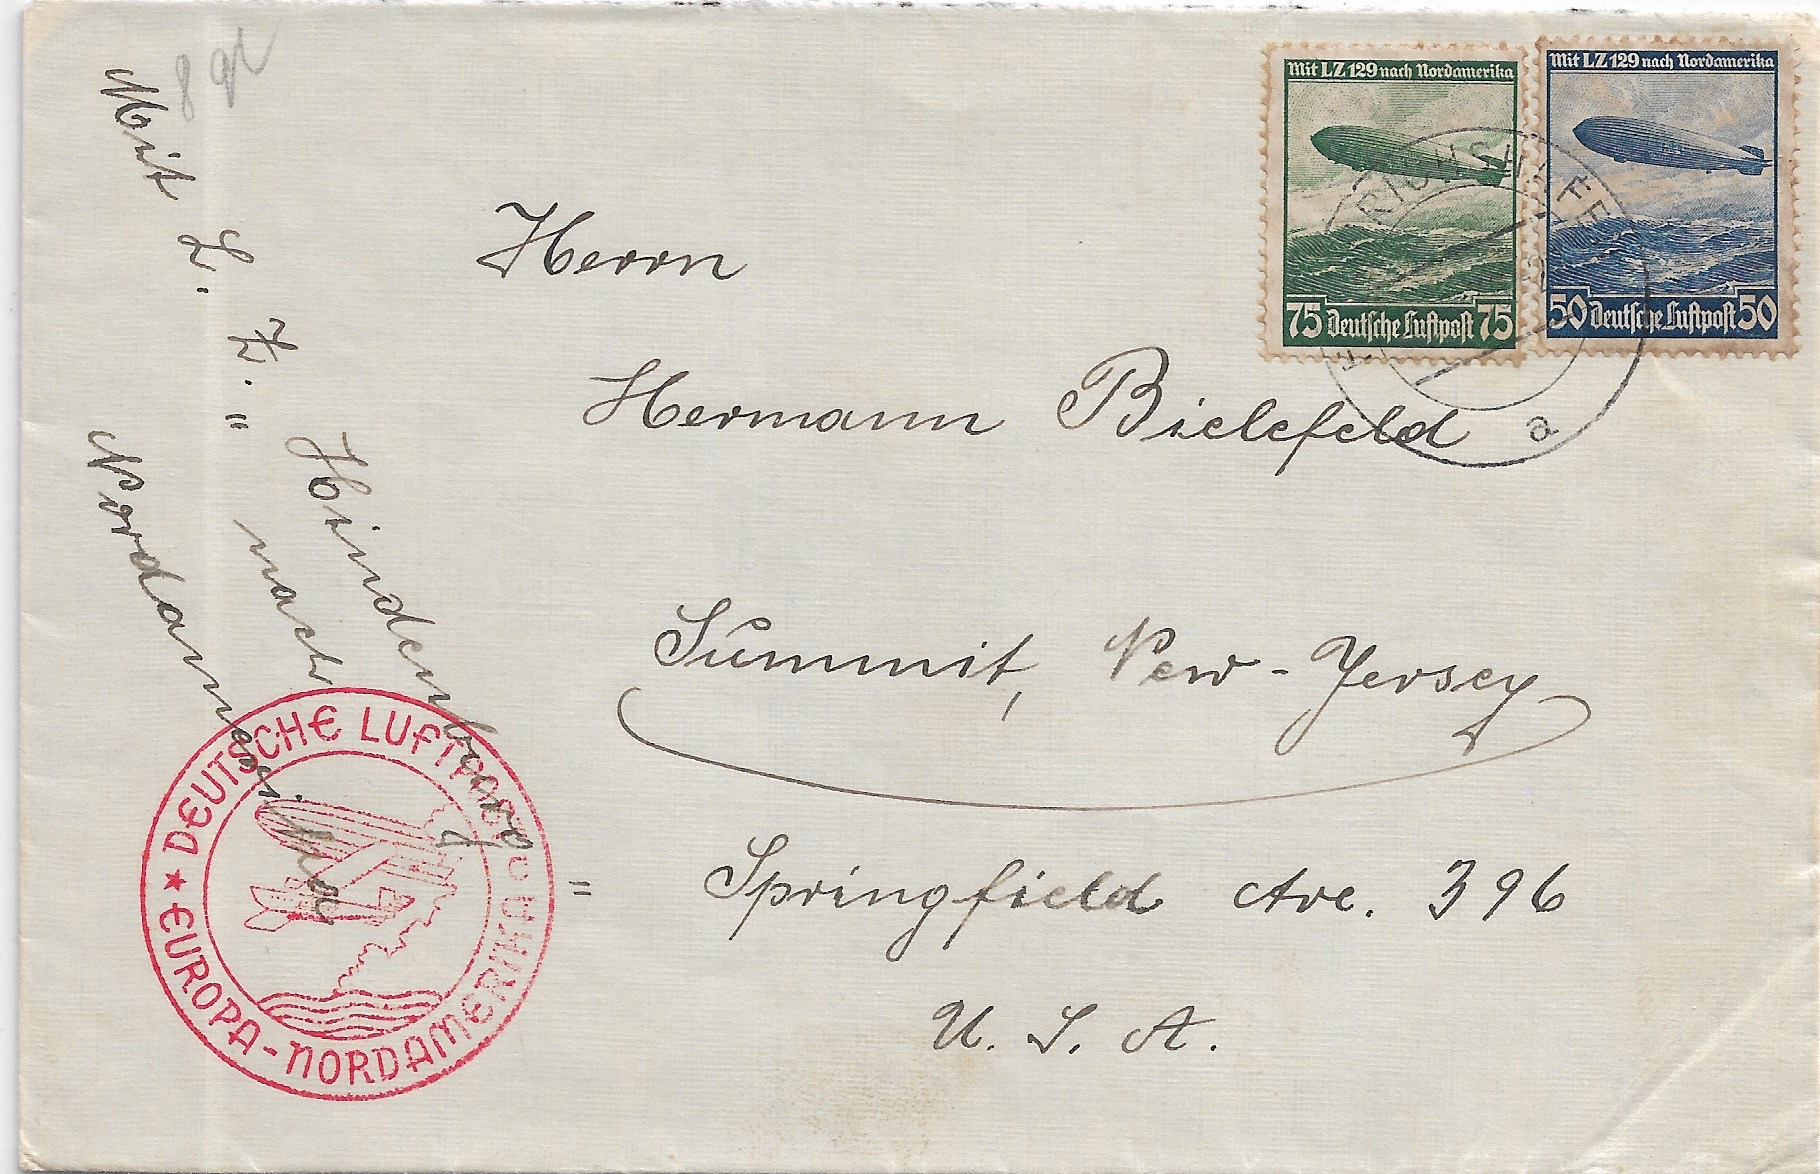 8 gr
Mit L. Z. "Hindenburg"
nach
Nordamerika
Mit LZ 129 nach Nordamerika
75 Deutsche Luftpost 75
Mit LZ 129 nach Nordamerika
50 Deutsche Luftpost 50
a
Herrn
Hermann Bielefeld
Summit, New-Jersey
Springfield Ave. 396
U. S. A.
DEUTSCHE LUFTPOST
★ EUROPA-NORDAMERIKA